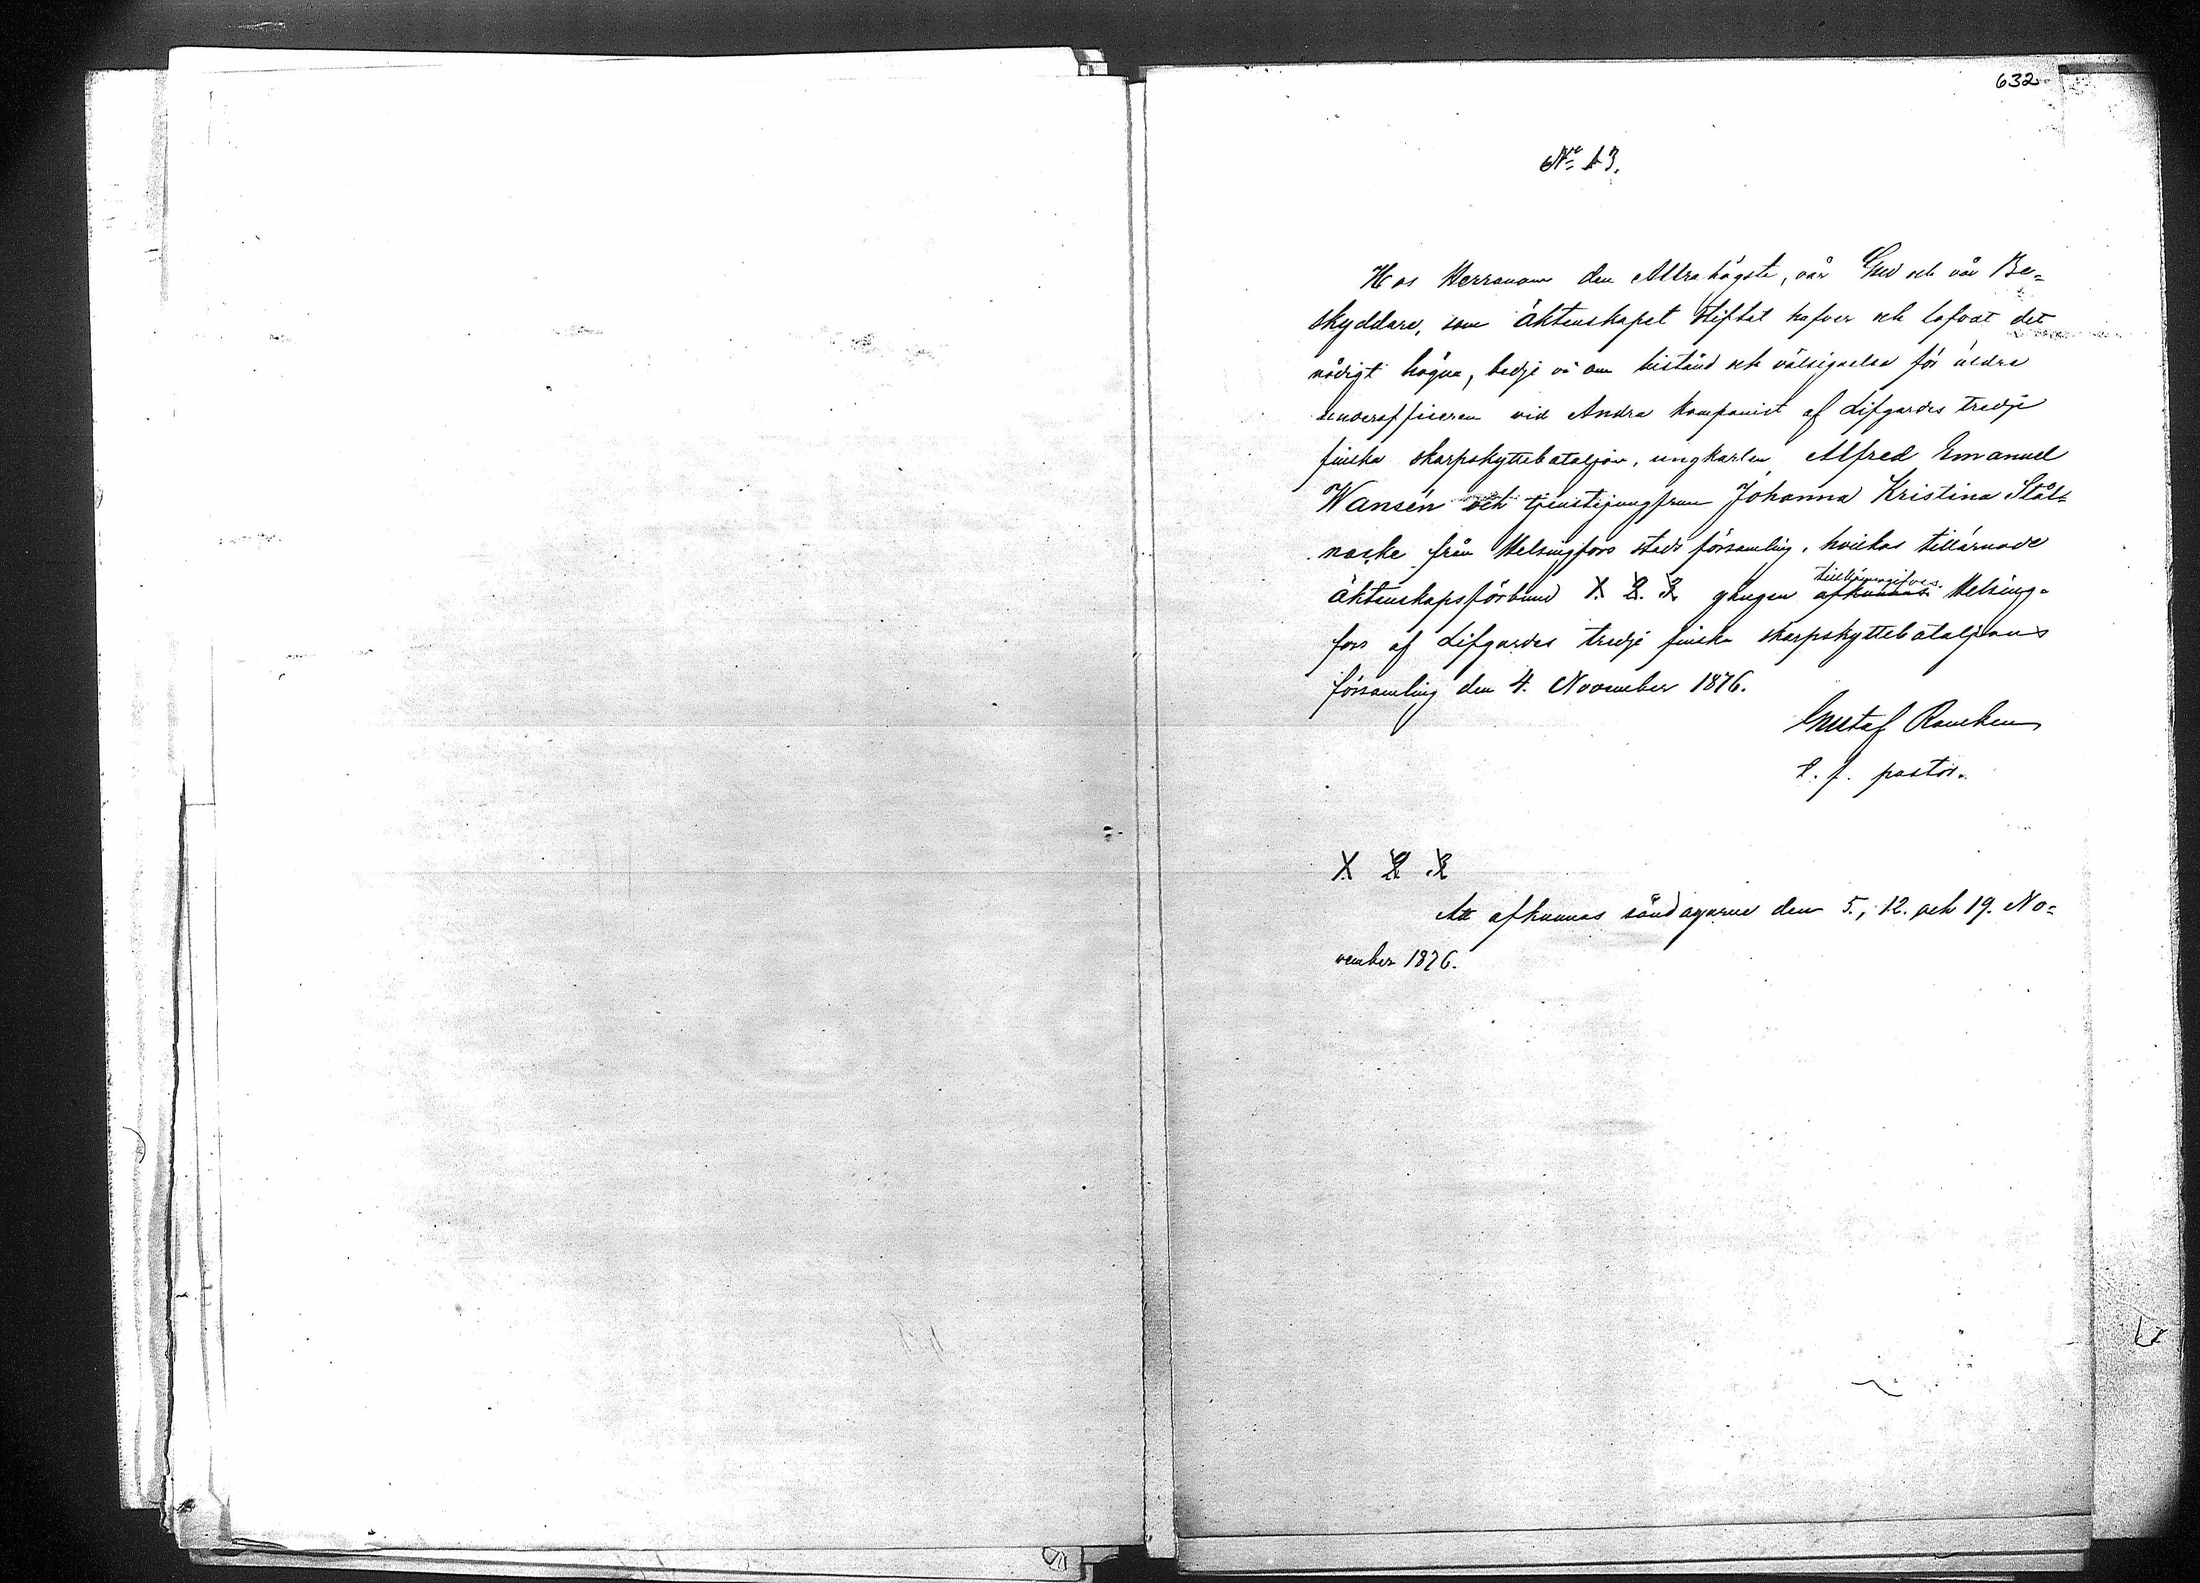 632
No 13.
Hos Herranom den Allrahögste, vår Gud och vår Be=
skyddare, som äktenskapet stiftat hafver och lofvat det
nådigt hägna, bedje vi om bistånd och välsignelse för äldre
underofficeren vid Andra kompaniet af Lifgardes tredje
finska skarpskyttebataljon, ungkarlen Alfred Emanuel
Wansén och tjenstejungfrun Johanna Kristina Stål=
nacke från Helsingfors stads församling, hvilkas tillärnade
äktenskapsförbund 1. 2. 3. gången afkunnas tillkännagifves. Helsing=
fors af Lifgardes tredje finska skarpskyttebataljons
församling den 4. November 1876.
Gustaf
t. f. pastor.
1 2 3
Att afkunnas söndagarne den 5., 12. och 19. No=
vember 1876.